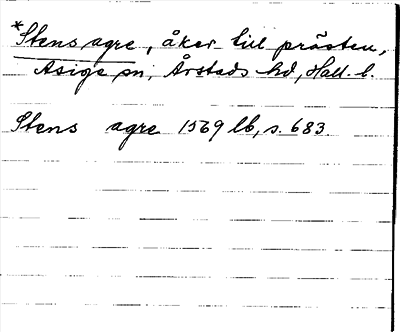 *Stens agre, åker till prästen,
Asige sn, Årstads hd, Hall. l.
Stens agre 1569 lb, s. 683.